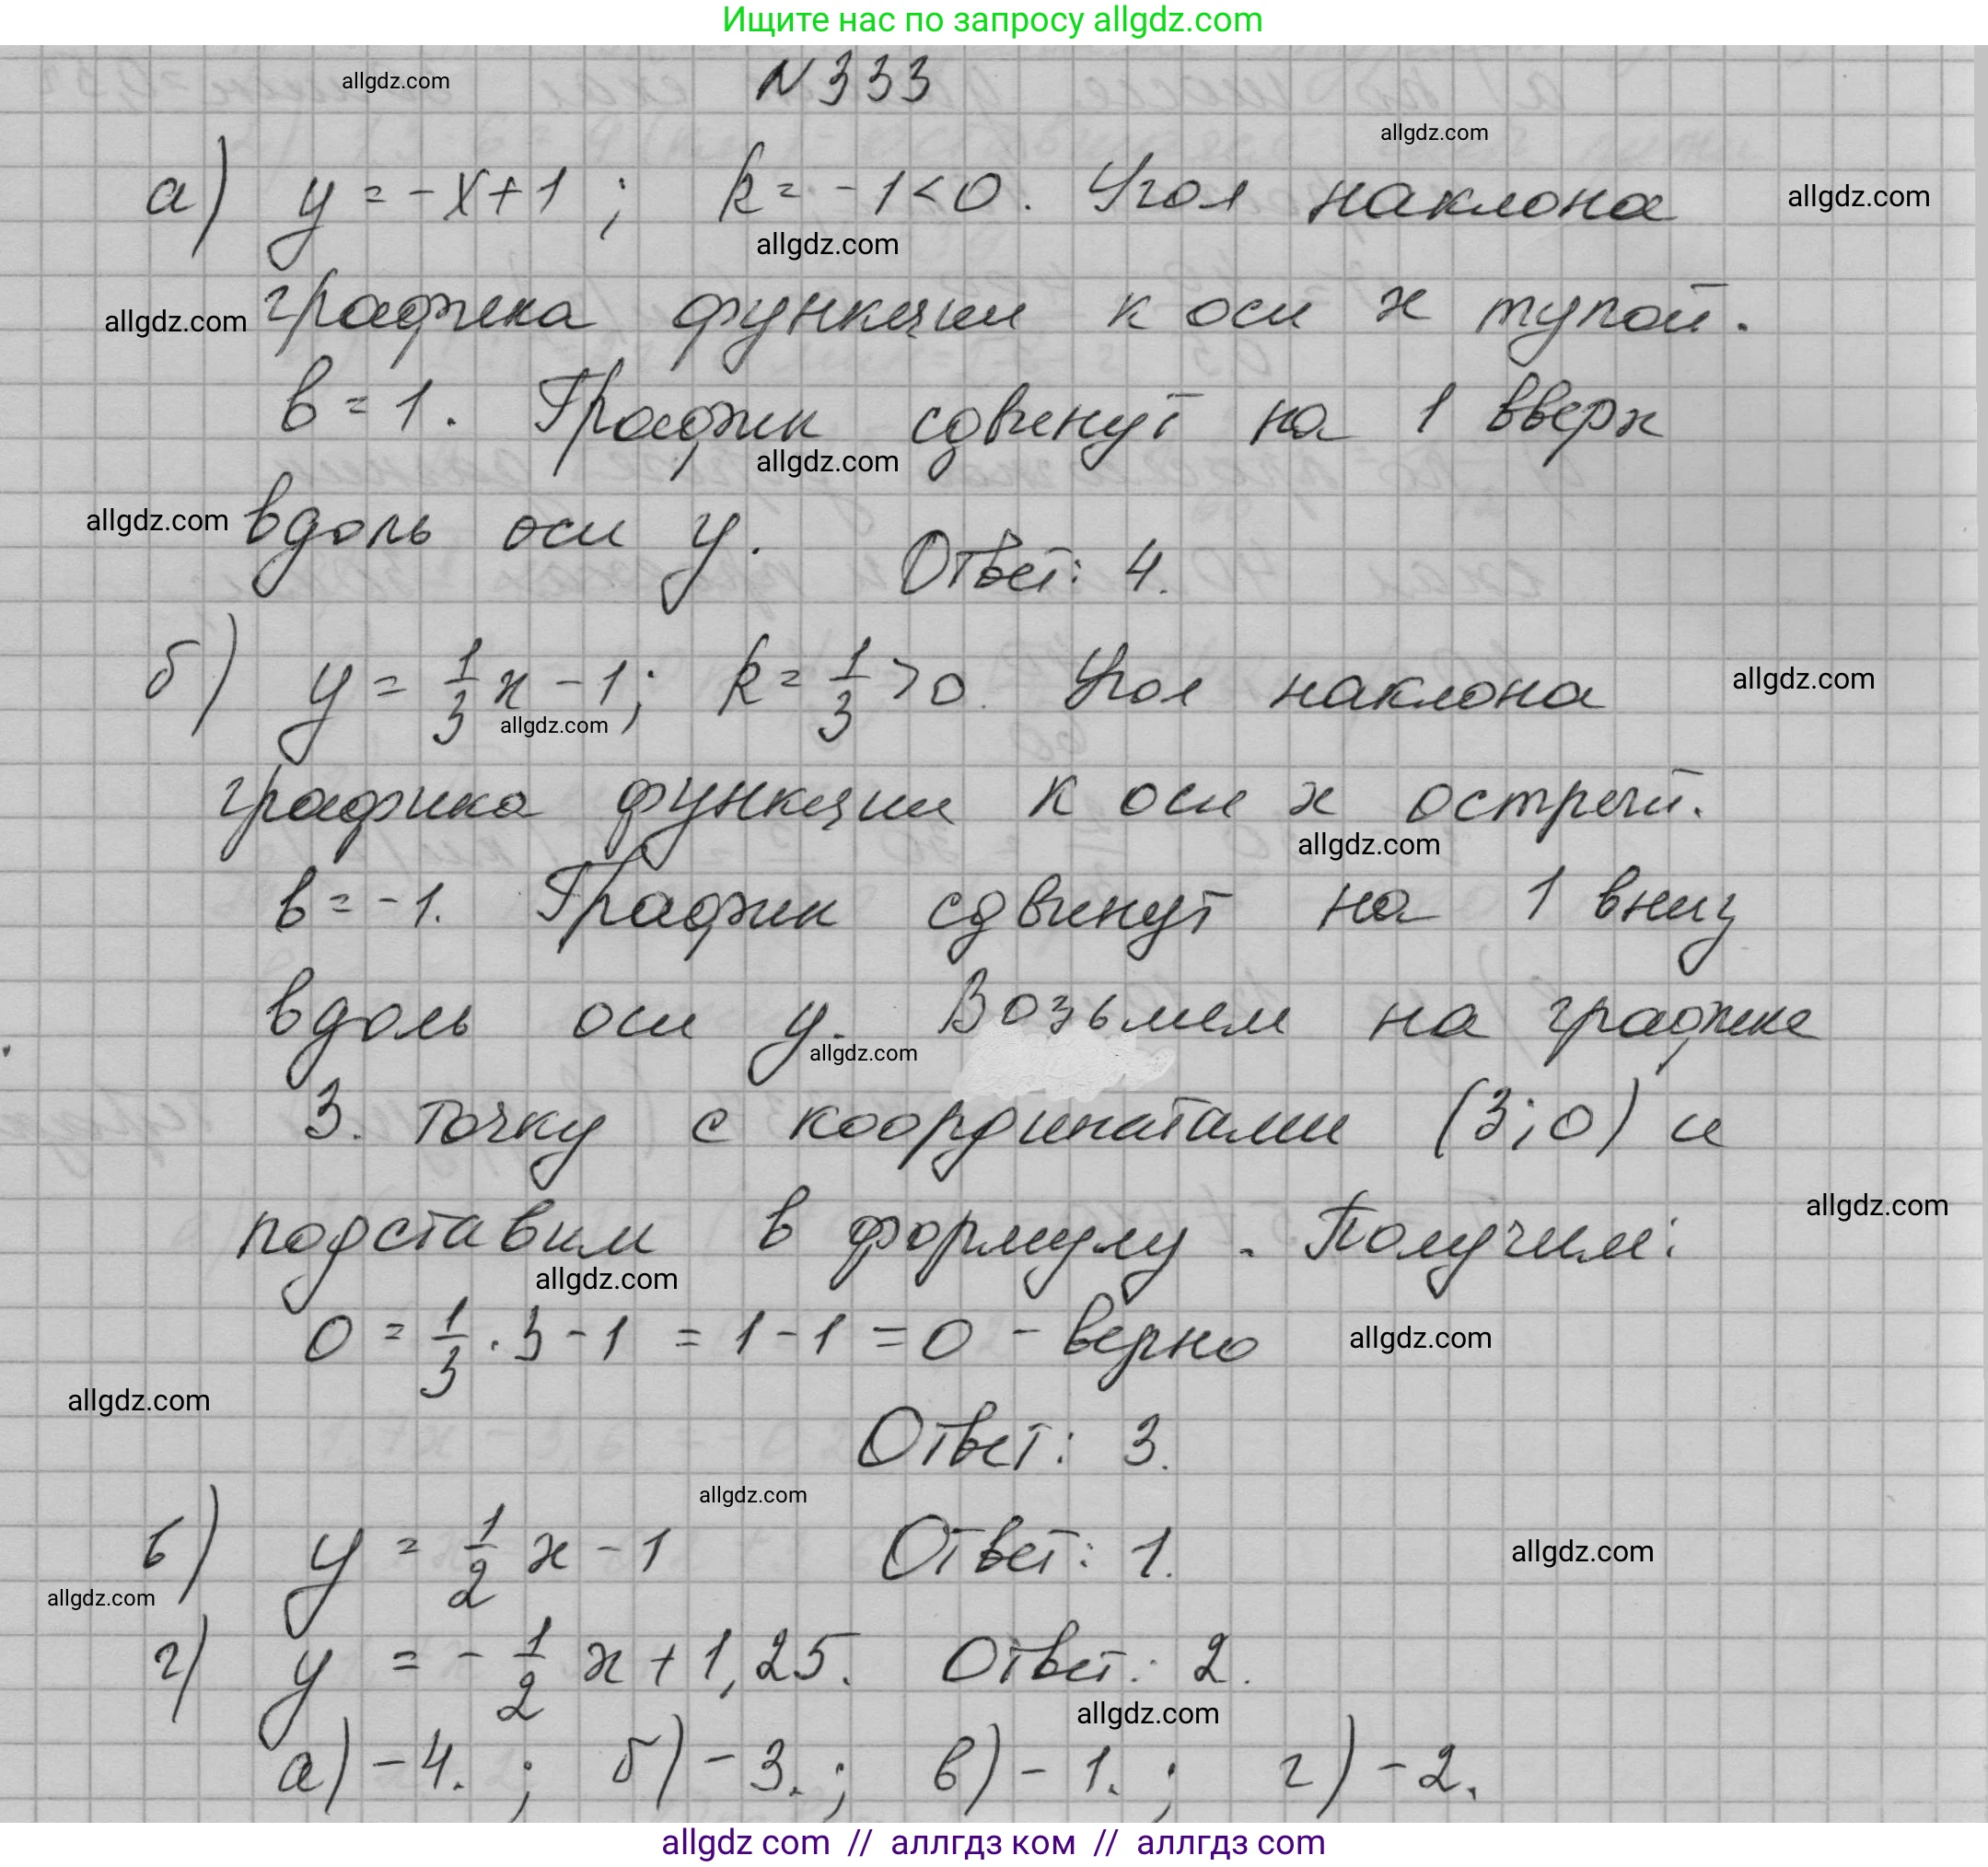 Ищите нас по запросу allgdz.com
N 333
allgdz.com
allgdz.com
а) y = -x+1 ; k = -1<0. Угол наклона
allgdz.com
allgdz.com
графика функции к оси x тупой.
allgdz.com
b = 1. График сдвинут на 1 вверх
allgdz.com
вдоль оси y. Ответ: 4.
allgdz.com
б) y = 1/3 x - 1; k = 1/3 > 0. Угол наклона
allgdz.com
allgdz.com
графика функции к оси x острый.
allgdz.com
b = -1. График сдвинут на 1 вниз
вдоль оси y. Возьмем на графике
allgdz.com
3. точку с координатами (3;0) и
подставим в формулу. Получим:
allgdz.com
allgdz.com
0 = 1/3 · 3 - 1 = 1 - 1 = 0 - верно
allgdz.com
allgdz.com
Ответ: 3.
allgdz.com
в) y = 1/2 x - 1 Ответ: 1.
allgdz.com
allgdz.com
г) y = - 1/2 x + 1,25. Ответ: 2.
allgdz.com
а) - 4. ; б) - 3. ; в) - 1. ; г) - 2.
allgdz com // аллгдз ком // аллгдз com